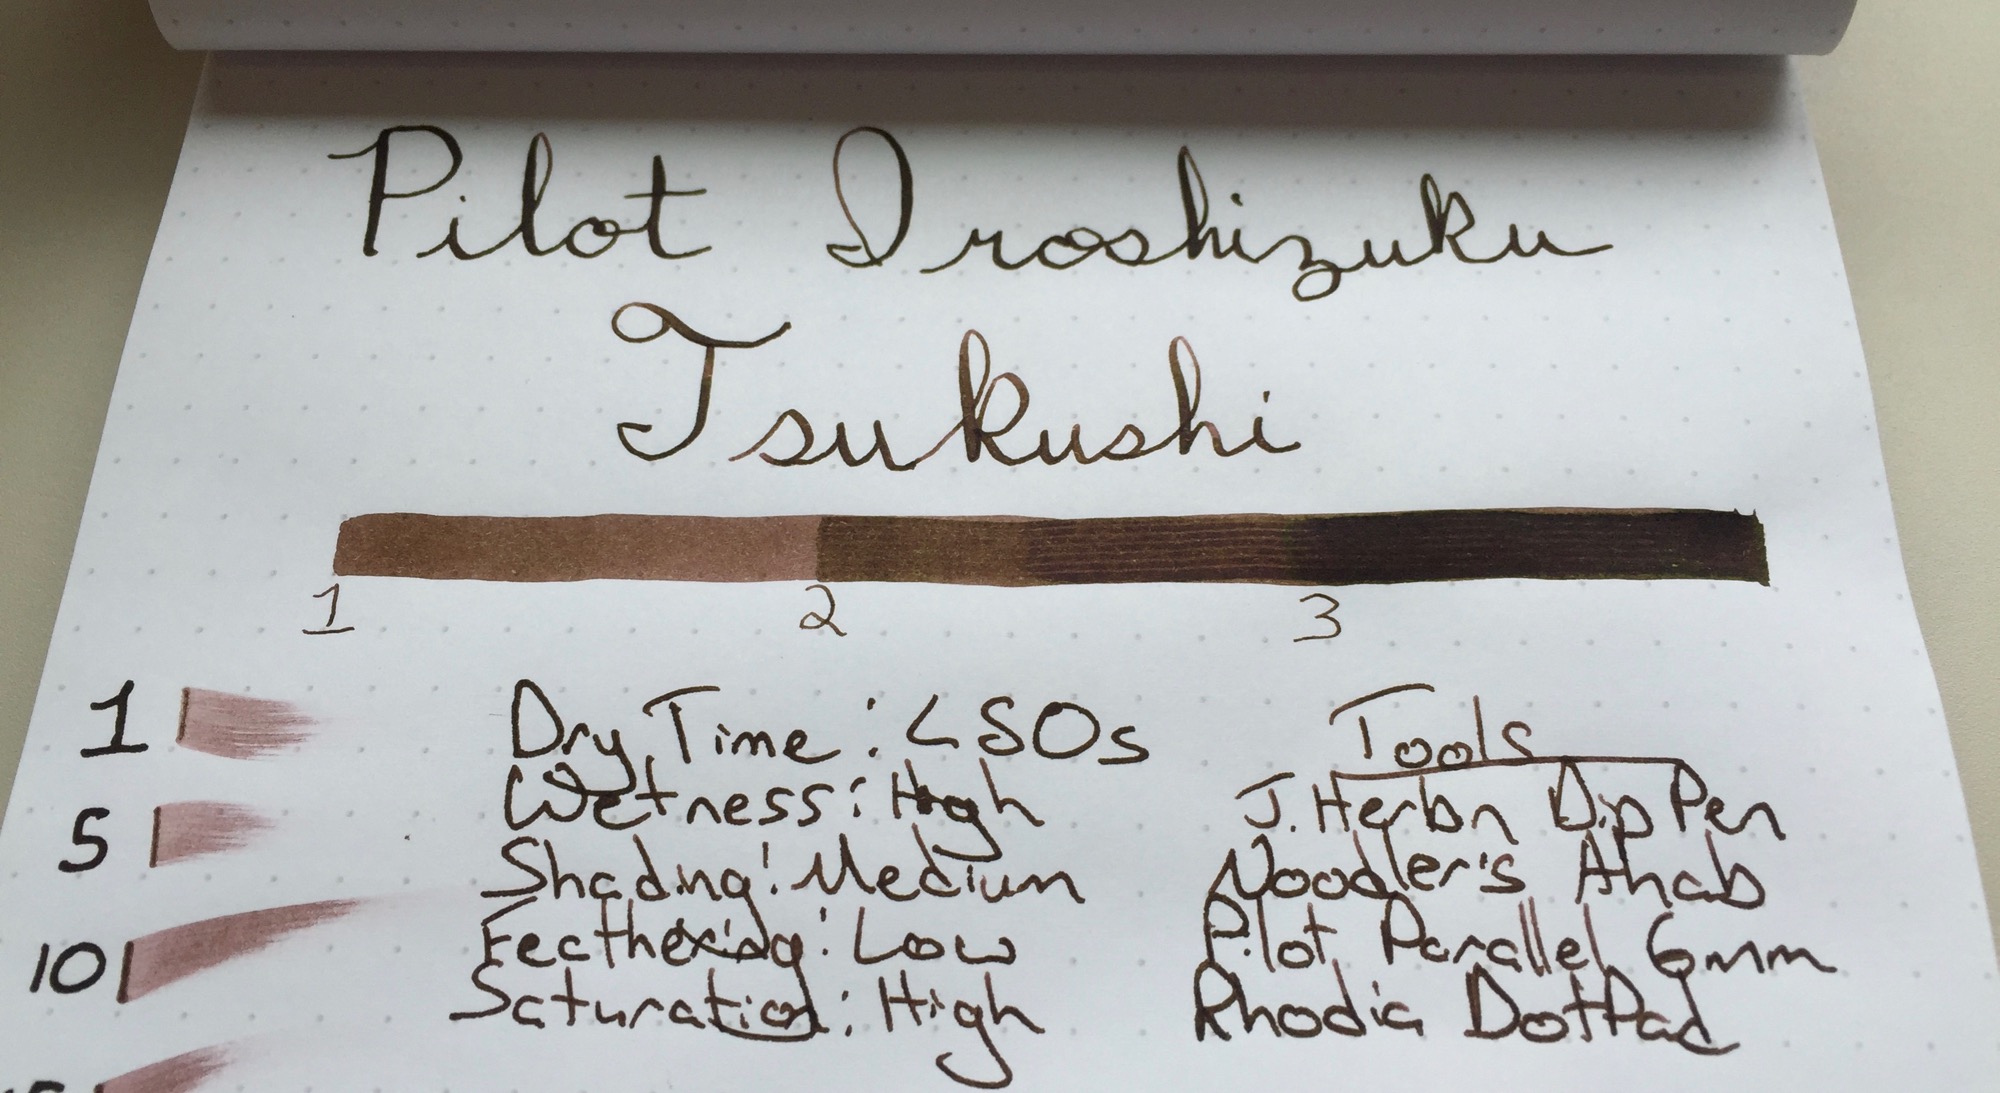 Pilot Iroshizuku
Tsukushi
1 2 3
1
Dry Time: <50s
Wetness: High
5
Shading: Medium
Feathering: Low
10
Saturation: High
Tools
J. Herbn Dip Pen
Noodler's Ahab
Pilot Parallel 6mm
Rhodia DotPad